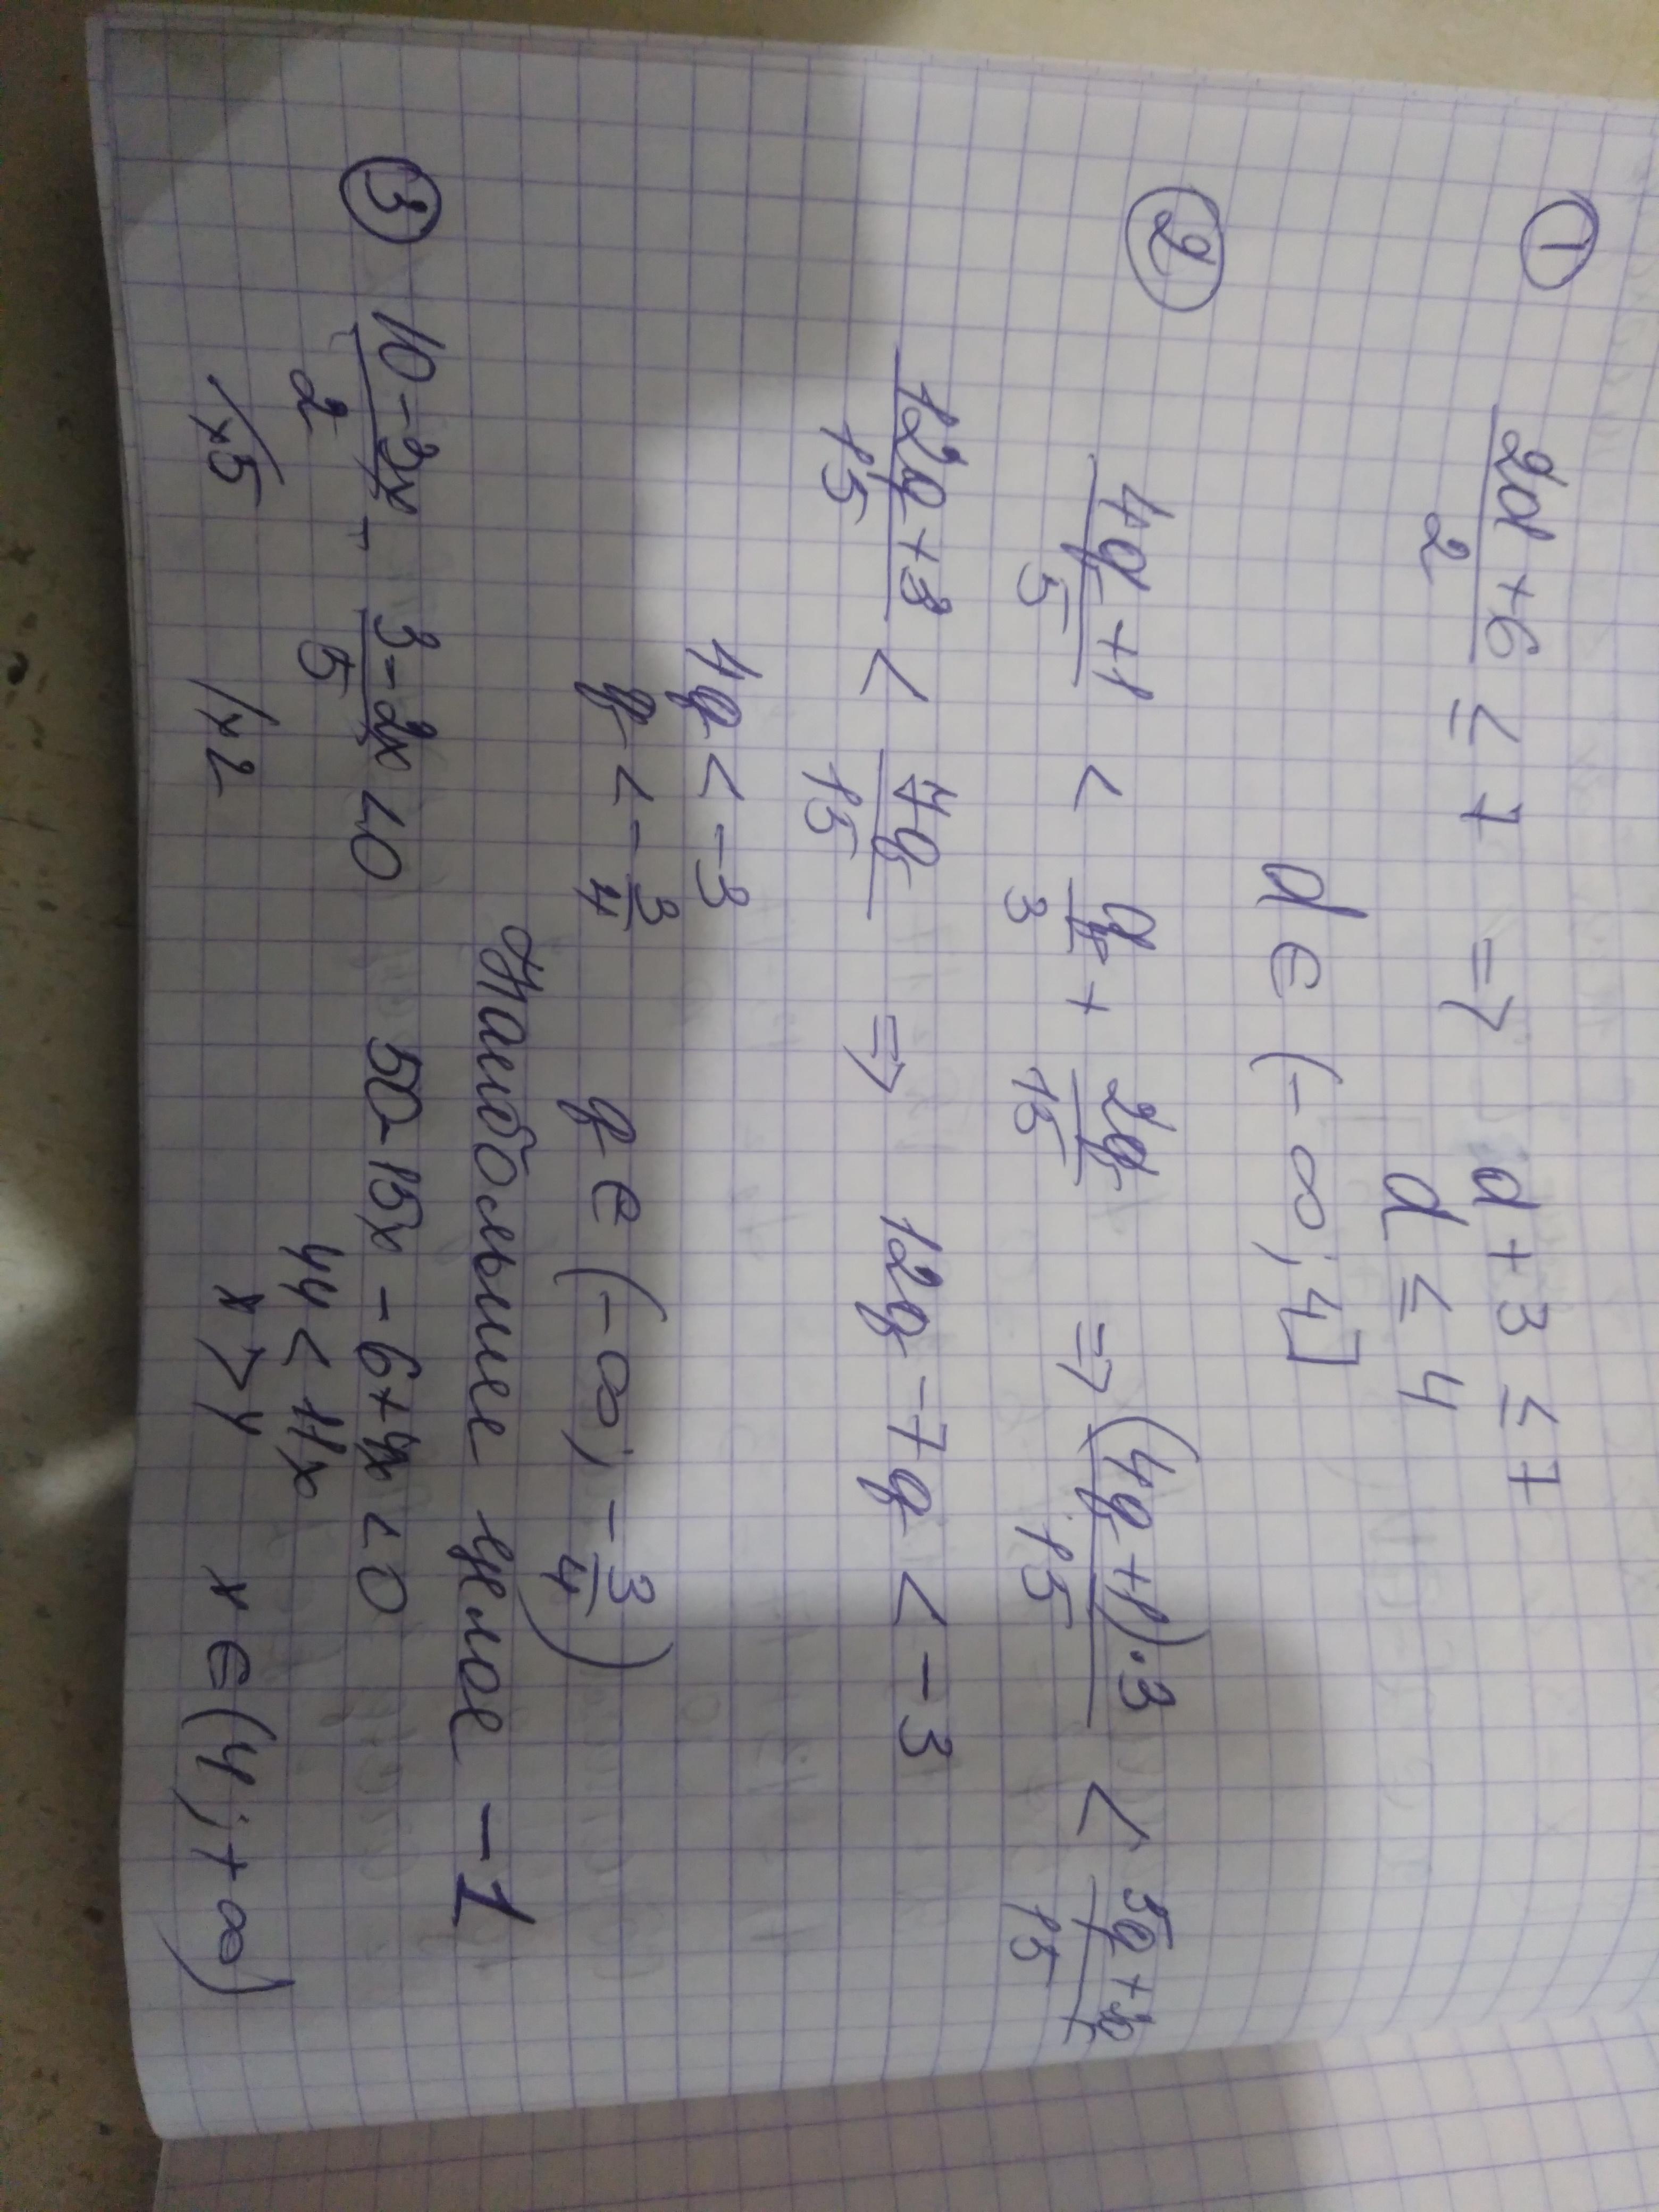 ① (2d+6)/2 ≤ 7 => d+3 ≤ 7
d ≤ 4
d ∈ (-∞; 4]
② (4q+1)/5 < q/3 + 2q/15 => ((4q+1)·3)/15 < (5q+2q)/15
(12q+3)/15 < 7q/15 => 12q-7q < -3
4q < -3
q < -3/4 q ∈ (-∞; -3/4)
Наибольшее целое -1
③ (10-3x)/2 - (3-2x)/5 < 0 50-15x-6+4x < 0
/×5 /×2 44 < 11x
x > 4 x ∈ (4; +∞)